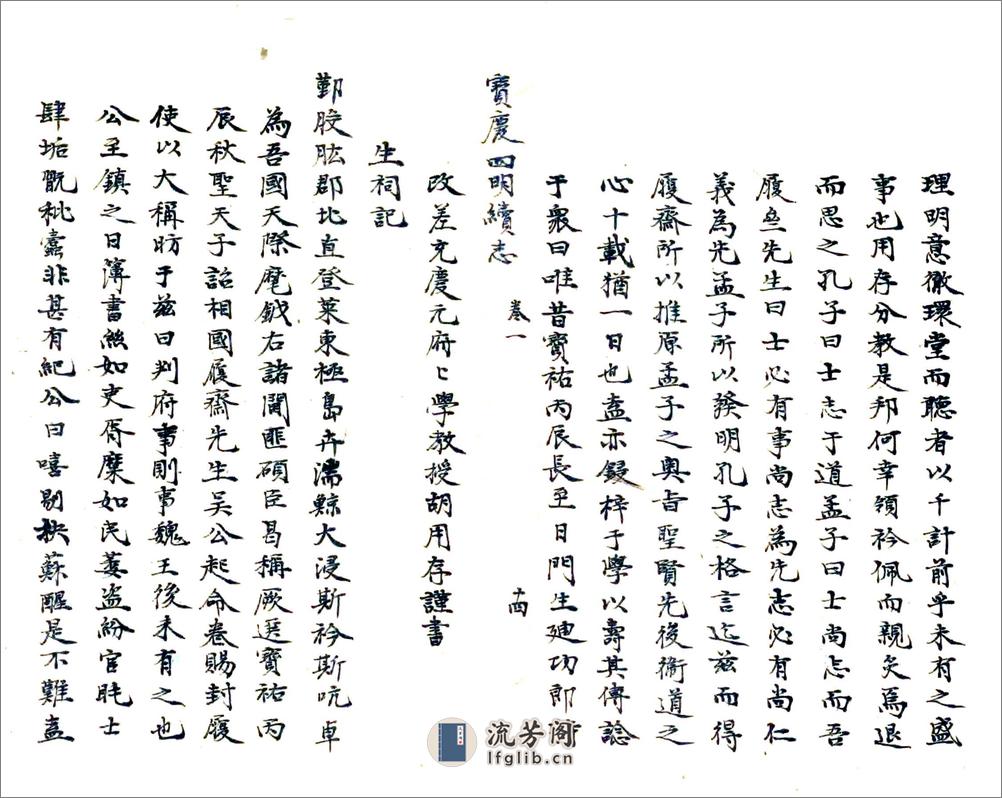 理明意徹環堂而聽者以千計前乎未有之盛
事也用存分教是邦何幸領衿佩而親炙焉退
而思之孔子曰士志于道孟子曰士尚志而吾
履䒭先生曰士必有事尚志為先志必有尚仁
義為先孟子所以發明孔子之格言迄茲而得
履齋所以推原孟子之奥旨聖賢先後衛道之
心十載猶一日也盍亦鋟梓于學以壽其傳諗
于衆曰唯昔寳祐丙辰長至日門生廸功郎
寳慶四明續志 卷一 十四
改差充慶元府〻學教授胡用存謹書
生祠記
鄞股肱郡北直登萊東極島卉濡鯨大浸斯衿斯吭卓
為吾國天際麾鉞右諸閫匪碩臣曷稱厥選寳祐丙
辰秋聖天子詔相國履齋先生吳公起命卷賜封履
使以大稱昉于兹曰判府事則事魏王後未有之也
公至鎮之日簿書絲如吏胥糜如民萎盗紛官眊士
肆垢翫秕蠹非甚有紀公曰嘻剔抉蘇醒是不難盍
流芳閣
lfglib.cn